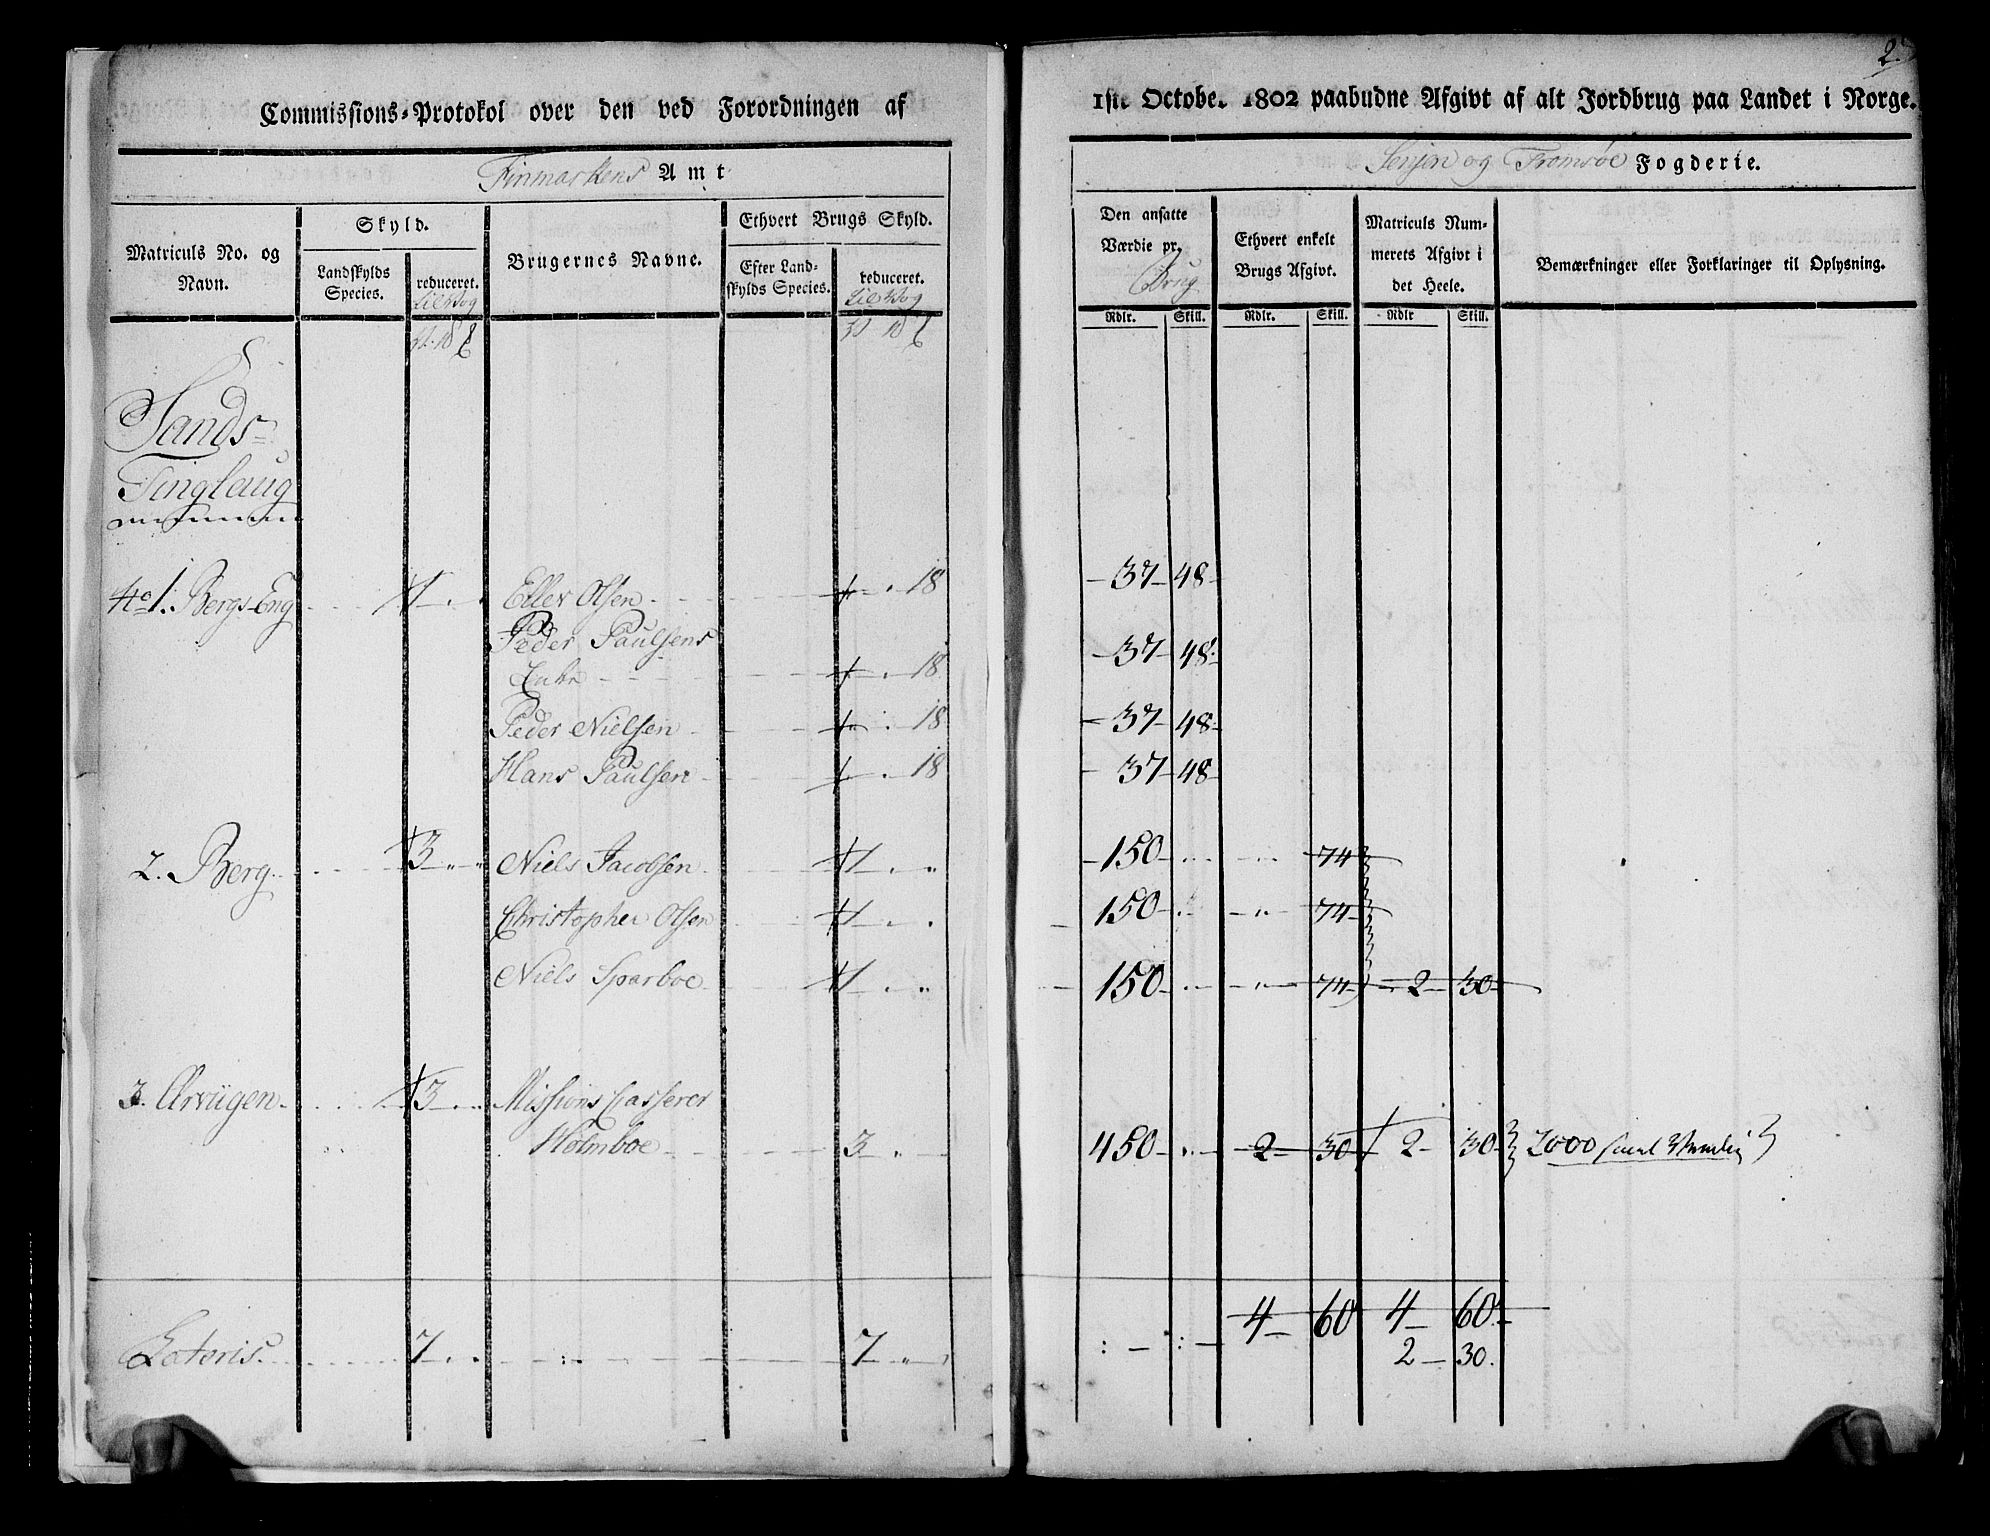 2.
Commissions-Protokol over den ved Forordningen af
1ste October 1802 paabudne Afgivt af alt Jordbrug paa Landet i Norge.
Finmarkens Amt
Senjen og Tromsøe Fogderie.
Matriculs No. og Navn.
Skyld.
Landskylds Species.
reduceret.
Brugernes Navne.
Ethvert Brugs Skyld.
Efter Landskylds Species.
reduceret.
Den ansatte Værdie pr. Brug
Ethvert enkelt Brugs Afgivt.
Matriculs Nummerets Afgivt i det Heele.
Bemærkninger eller Forklaringer til Oplysning.
Rdlr. Skill. Rdlr. Skill. Rdlr Skill.
Sands-
Tinglaug
No 1. Bergs-Eng 1 Eller Olsen 18 37 48
Peder Paulsens
Enke 18 37 48
Peder Nielsen 18 37 48
Hans Paulsen 18 37 48
2. Berg 3 Niels Jacobsen 1 150 74
Christopher Olsen 1 150 74
Niels Sparboe 1 150 74 2 30
3. Arviigen 3 Missions Casserer
Holmboe 3 450 2 30 2 30 2000
4 60 4 60
Lateris 7 7 2 30.